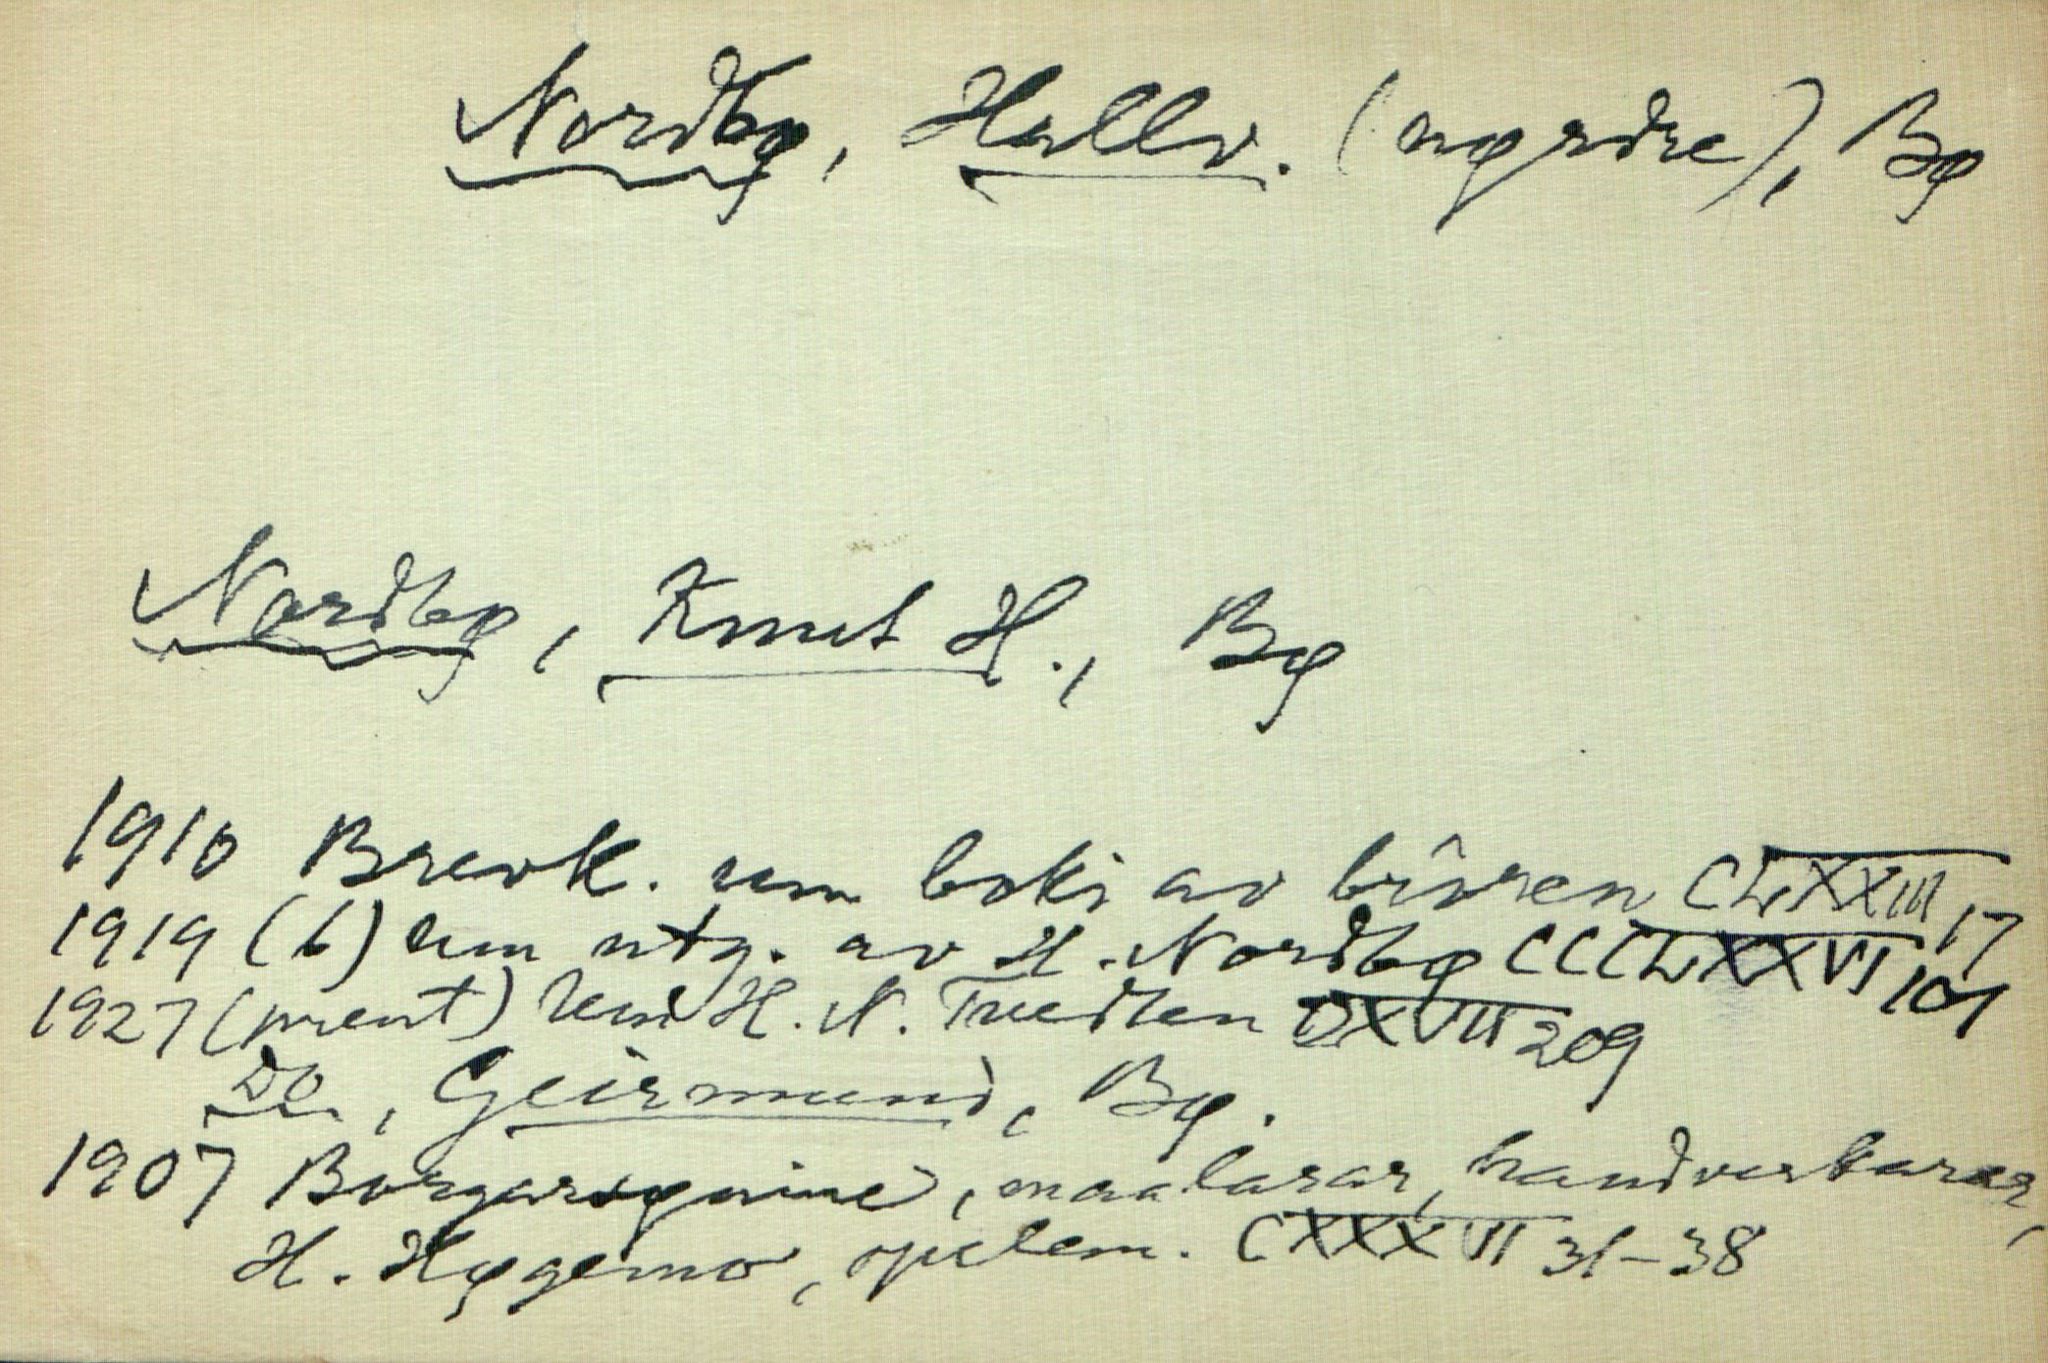 Nordbø, Hallv. (nørdre), Bø
Nordbø, Knut H., Bø
1910 Brevk. um boki av bróren CLXXIII 17
1919 (b) um utg. av H. Nordbø CCCLXXVI 101
1927 (prent) H. N. Tvedten DXVII 209
Do, Geirmund, Bø.
1907 maalarar, handverkarar,
H. Hygemo, spelem. CXXXVI 31-38